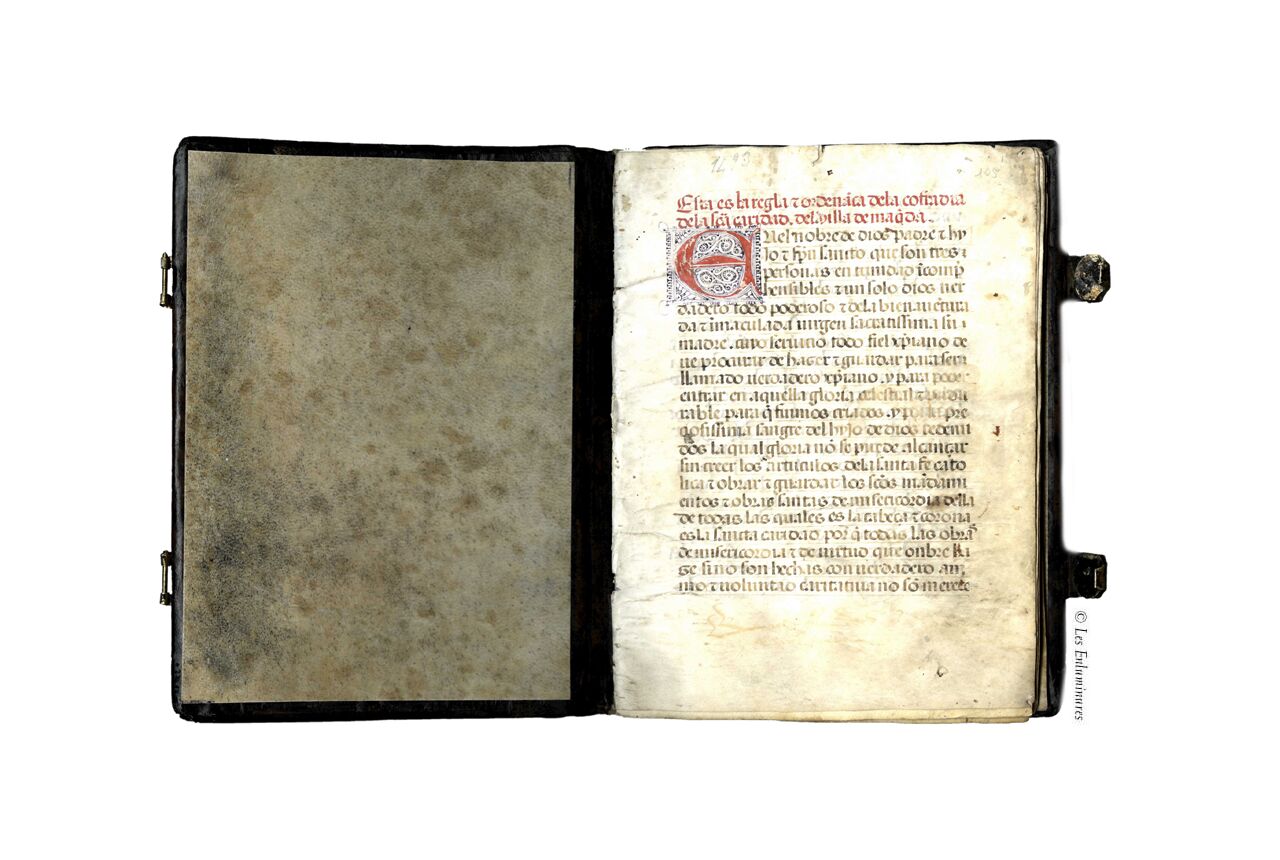 1493
105
Esta es la regla ⁊ ordenãça dela cofradia
dela scã caridad. del villa de maq̃da.
En el nõbre de dios padre ⁊ hy
jo ⁊ spũ santo que son tres
personas en trinidad ĩcomp̃
hensibles ⁊ un solo dios ver
dadero todo poderoso ⁊ dela bien auẽtura
da ⁊ ĩmaculada uirgen sacratissima su
madre. cuyo seruicio todo fiel xp̃iano de
ue procurar de hazer ⁊ guardar para ser
llamado uerdadero xp̃iano .y para poder
entrar en aquella gloria celestial ⁊ perdu
rable para q̃ fuimos criados .y por la pre
ciosissima sangre del hyjo de dios redemi
dos la qual gloria nõ se puede alcançar
sin creer los articulos dela santa fe cato
lica ⁊ obrar ⁊ guardar los scõs mãdami
entos ⁊ obras santas de misericordia della
de todas las quales es la cabeça ⁊ corona
es la sancta caridad por q̃ todas las obras
de misericordia ⁊ de uirtud que onbre ha
ge si no son hechas con uerdadero ani
mo ⁊ uoluntad caritatiua no sõ merete
© Les Enluminures